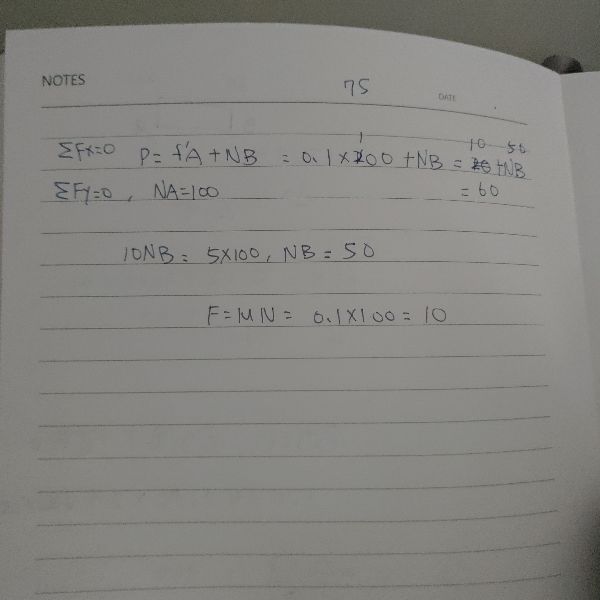 NOTES
75
DATE
1
10 50
ΣFx=0 P= f'A + NB = 0.1 x 200 + NB = 20 + NB
ΣFy=0, NA=100 = 60
10NB = 5x100, NB = 50
F=μN = 0.1x100 = 10